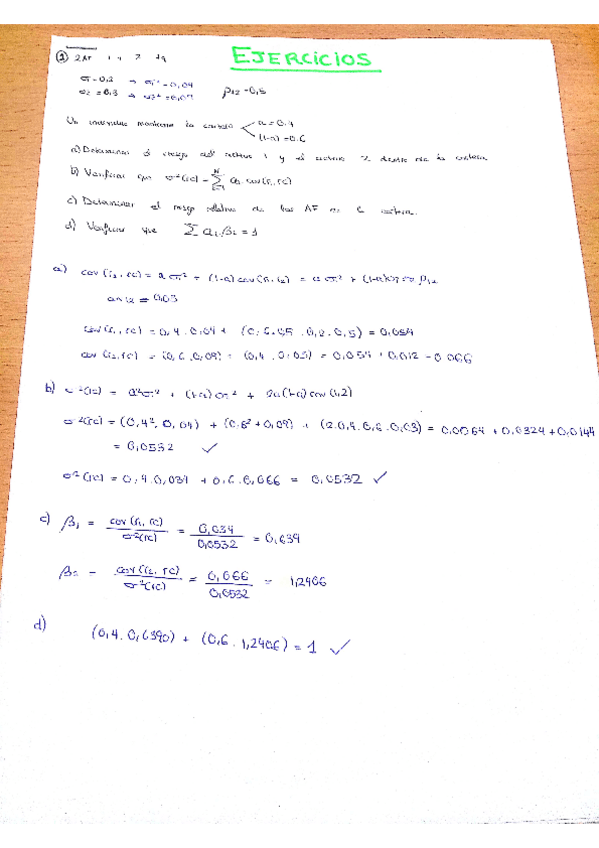 EJERCICIOS
① 2 AF 1 y 2
σ = 0,2 → σ₁² = 0,04
σ₂ = 0,3 → σ₂² = 0,09 ρ12 = 0,5
Un individuo mantiene la cartera a = 0.4
(1-a) = 0.6
a) Determinar el riesgo del activo 1 y el activo 2 dentro de la cartera
b) Verificar que σ²(rc) = Σ ai cov(ri, rc)
c) Determinar el riesgo relativo de los AF en c cartera.
d) Verificar que Σ ai βi = 1
a) cov(i2, rc) = a σ² + (1-a) cov(r1, r2) = a σ² + (1-a) ρ12
= 0,03
cov(r1, rc) = 0,4 · 0,04 + (0,6 · 0,3 · 0,2 · 0,5) = 0,034
cov(r2, rc) = (0,6 · 0,09) + (0,4 · 0,03) = 0,054 + 0,012 = 0,066
b) σ²(rc) = a²σ² + (1-a) σ² + 2a(1-a) cov(1,2)
σ²(rc) = (0,4², 0,04) + (0,6² + 0,09) + (2·0,4·0,6·0,03) = 0,0064 + 0,0324 + 0,0144
= 0,0532 ✓
σ²(rc) = 0,4 · 0,034 + 0,6 · 0,066 = 0,0532 ✓
c) β₁ = cov(r1, rc) / σ²(rc) = 0,034 / 0,0532 = 0,639
β₂ = cov(r2, rc) / σ²(rc) = 0,066 / 0,0532 = 1,2406
d) (0,4 · 0,6390) + (0,6 · 1,2406) = 1 ✓